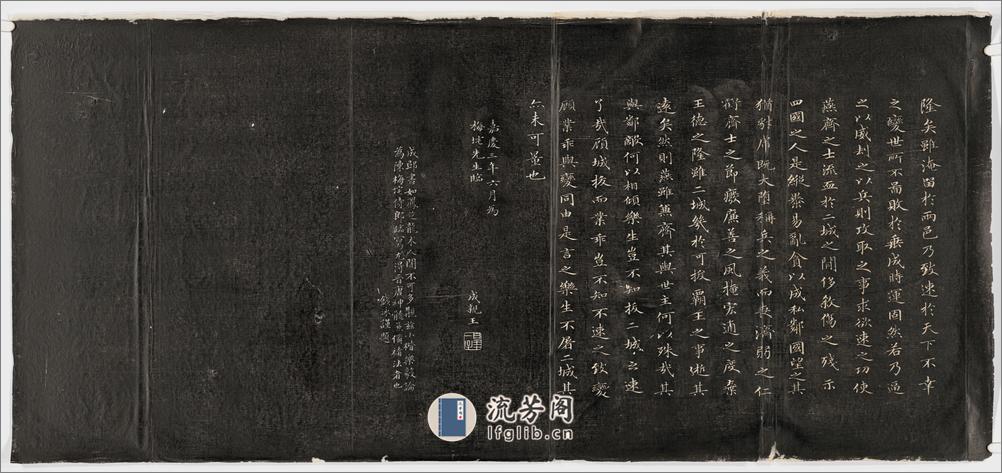 隆矣雖淹留於兩邑乃致速於天下不幸
之變世所不圖敗於垂成時運固然若乃逼
之以威刼之以兵則攻取之事求欲速之功使
燕齊之士流血於二城之間侈敘傷之殘示
四國之人是縱暴易亂貪以成私鄰國望之其
猶豺虎既大墮稱兵之義而喪濟弱之仁
虧齊士之節癈廉善之風掩宏通之度棄
王德之隆雖二城幾於可拔霸王之事逝其
遠矣然則燕雖兼齊其與世主何以殊哉其
與鄰敵何以相傾樂生豈不知拔二城之速
了哉顧城拔而業乖豈不知不速之致變
顧業乖與變同由是言之樂生不屠二城其
亦未可量也
嘉慶三年六月為
梅垞先生臨
成親王
成邸書如 人間不可多觀茲楷樂毅論
為陳梅垞侍郎臨寫尤得晉唐神髓 楮法者也
流芳阁
lfglib.cn